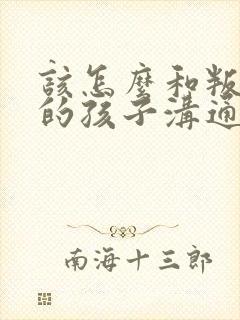 該怎麼和叛
的孩子溝通
南海十三郎